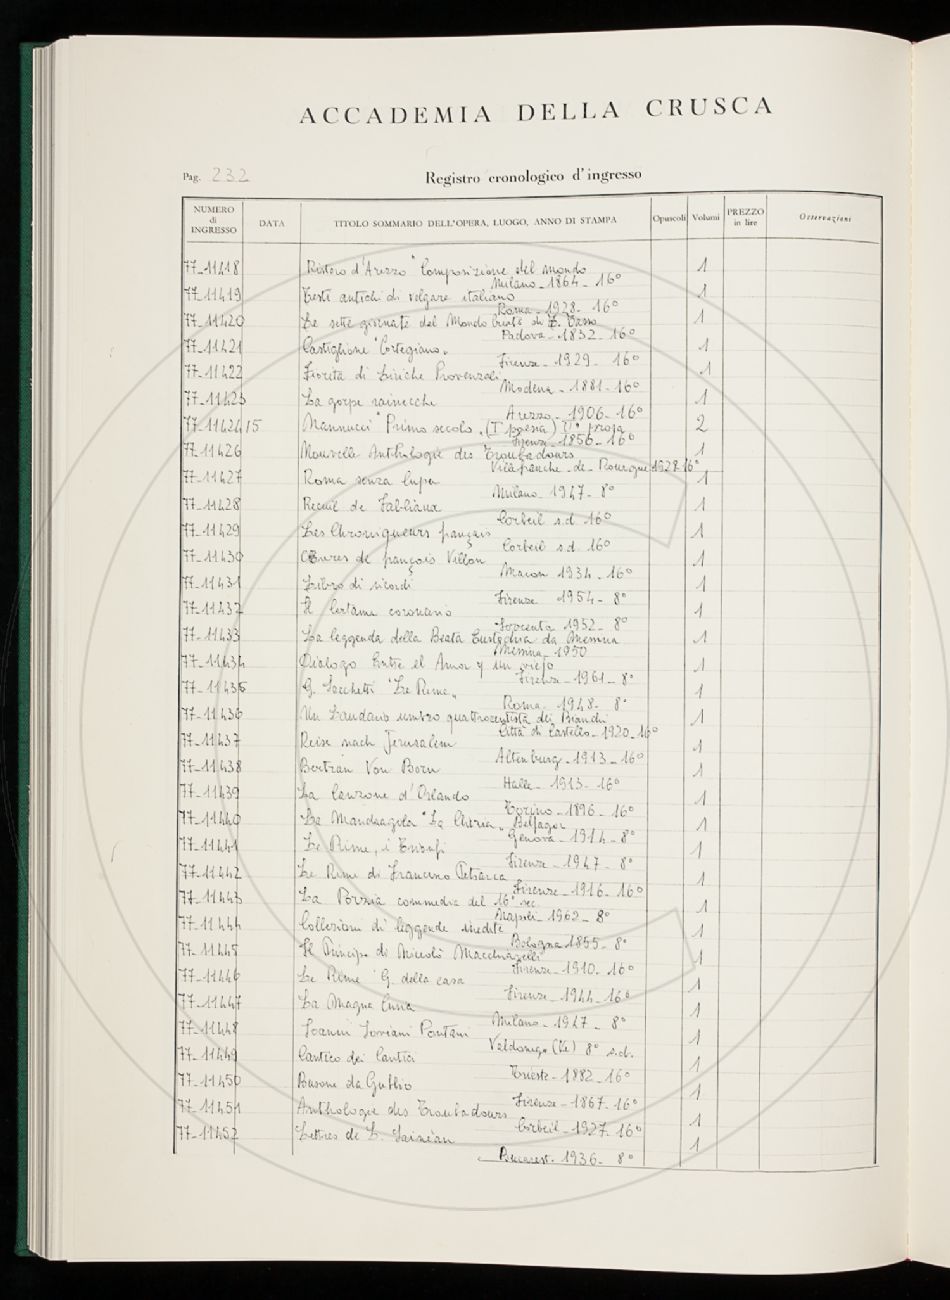 ACCADEMIA DELLA CRUSCA
Pag. 232
Registro cronologico d'ingresso
NUMERO di INGRESSO DATA TITOLO SOMMARIO DELL'OPERA, LUOGO, ANNO DI STAMPA Opuscoli Volumi PREZZO in lire Osservazioni
77-11418 Ristoro d'Arezzo "Composizione del mondo 1
Milano - 1864 - 16°
77-11419 Testi antichi di volgare italiano 1
Roma - 1928 - 16°
77-11420 Le sette giornate del Mondo Creato di T. Tasso 1
Padova - 1832 - 16°
77-11421 Castiglione "Cortegiano" 1
Firenze - 1929 - 16°
77-11422 Fiorita di Liriche Provenzali 1
Modena - 1881 - 16°
77-11423 La gorpe 1
Arezzo - 1906 - 16°
77-11424/15 Mannucci "Primo secolo" (I° poesia) II° prosa 2
Firenze - 1856 - 16°
77-11426 Nouvelle Anthologie des Troubadours 1
Villefranche - de - Rouergue 1928 16°
77-11427 Roma senza lupa 1
Milano - 1947 - 8°
77-11428 Recueil de Fabliaux 1
Corbeil s.d. 16°
77-11429 Les Chroniqueurs français 1
Corbeil s.d. 16°
77-11430 Œuvres de françois Villon 1
Macon 1934 - 16°
77-11431 Libro di ricordi 1
Firenze 1954 - 8°
77-11432 Il Certame coronario 1
1952 - 8°
77-11433 La leggenda della Beata Eustochia da Messina 1
Messina - 1950
77-11434 Dialogo Entre el Amor y un viejo 1
Firenze - 1961 - 8°
77-11435 G. Sacchetti "Le Rime" 1
Roma - 1948 - 8°
77-11436 Un Laudario umbro quattrocentista dei Bianchi 1
Città di Castello - 1920 - 16°
77-11437 Reise nach Jerusalem 1
Altenburg - 1913 - 16°
77-11438 Bertran Von Born 1
Halle - 1913 - 16°
77-11439 La Canzone d'Orlando 1
Torino - 1896 - 16°
77-11440 La Mandragola "La Clizia" Belfagor 1
Genova - 1914 - 8°
77-11441 Le Rime, i Trionfi 1
Firenze - 1947 - 8°
77-11442 Le Rime di Francesco Petrarca 1
Firenze - 1916 - 16°
77-11443 La commedia del 16° sec. 1
Napoli - 1962 - 8°
77-11444 Collezioni di leggende inedite 1
Bologna 1855 - 8°
77-11445 Il Principe di Niccolò Macchiavelli 1
Firenze - 1910 - 16°
77-11446 Le Rime G. della casa 1
Firenze - 1944 - 16°
77-11447 La Magna Curia 1
Milano - 1947 - 8°
77-11448 Joanni Joviani Pontani 1
Valdonega (Ve) 8° s.d.
77-11449 Cantico dei Cantici 1
Trieste - 1882 - 16°
77-11450 Busone da Gubbio 1
Firenze - 1867 - 16°
77-11451 Anthologie des Troubadours 1
Corbeil - 1927 - 16°
77-11452 Lettres de L. Sainéan 1
Bucarest - 1936 - 8°